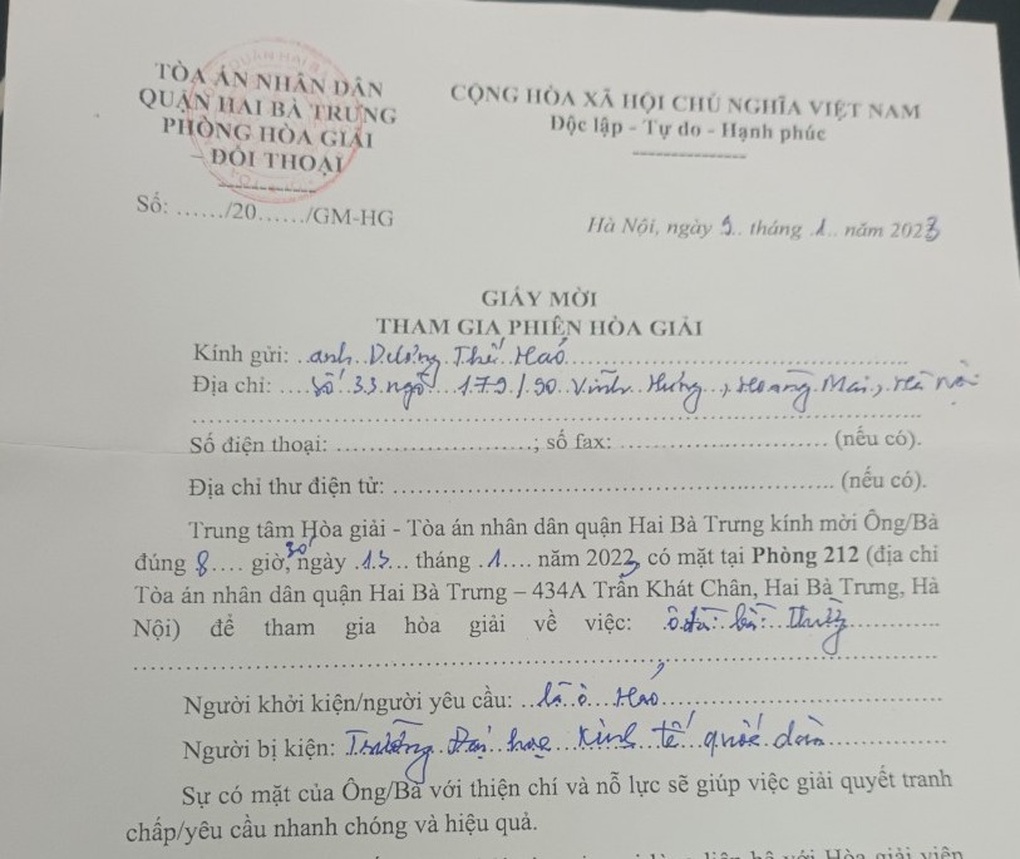 TÒA ÁN NHÂN DÂN
QUẬN HAI BÀ TRƯNG
PHÒNG HÒA GIẢI
– ĐỐI THOẠI
CỘNG HÒA XÃ HỘI CHỦ NGHĨA VIỆT NAM
Độc lập - Tự do - Hạnh phúc
Số: ....../20....../GM-HG
Hà Nội, ngày 9.. tháng .1.. năm 2023
GIẤY MỜI
THAM GIA PHIÊN HÒA GIẢI
Kính gửi: ..anh..Dương..Thế..Hảo
Địa chỉ: ....Số 33 ngõ 179/90 Vĩnh Hưng, Hoàng Mai, Hà Nội
Số điện thoại: ..............................; số fax: .............................. (nếu có).
Địa chỉ thư điện tử: .............................. (nếu có).
Trung tâm Hòa giải - Tòa án nhân dân quận Hai Bà Trưng kính mời Ông/Bà
đúng 8.... giờ, 30' ngày .13... tháng .1.... năm 2023, có mặt tại Phòng 212 (địa chỉ
Tòa án nhân dân quận Hai Bà Trưng – 434A Trần Khát Chân, Hai Bà Trưng, Hà
Nội) để tham gia hòa giải về việc:
Người khởi kiện/người yêu cầu: là ô Hảo
Người bị kiện: Trường Đại học Kinh tế quốc dân
Sự có mặt của Ông/Bà với thiện chí và nỗ lực sẽ giúp việc giải quyết tranh
chấp/yêu cầu nhanh chóng và hiệu quả.